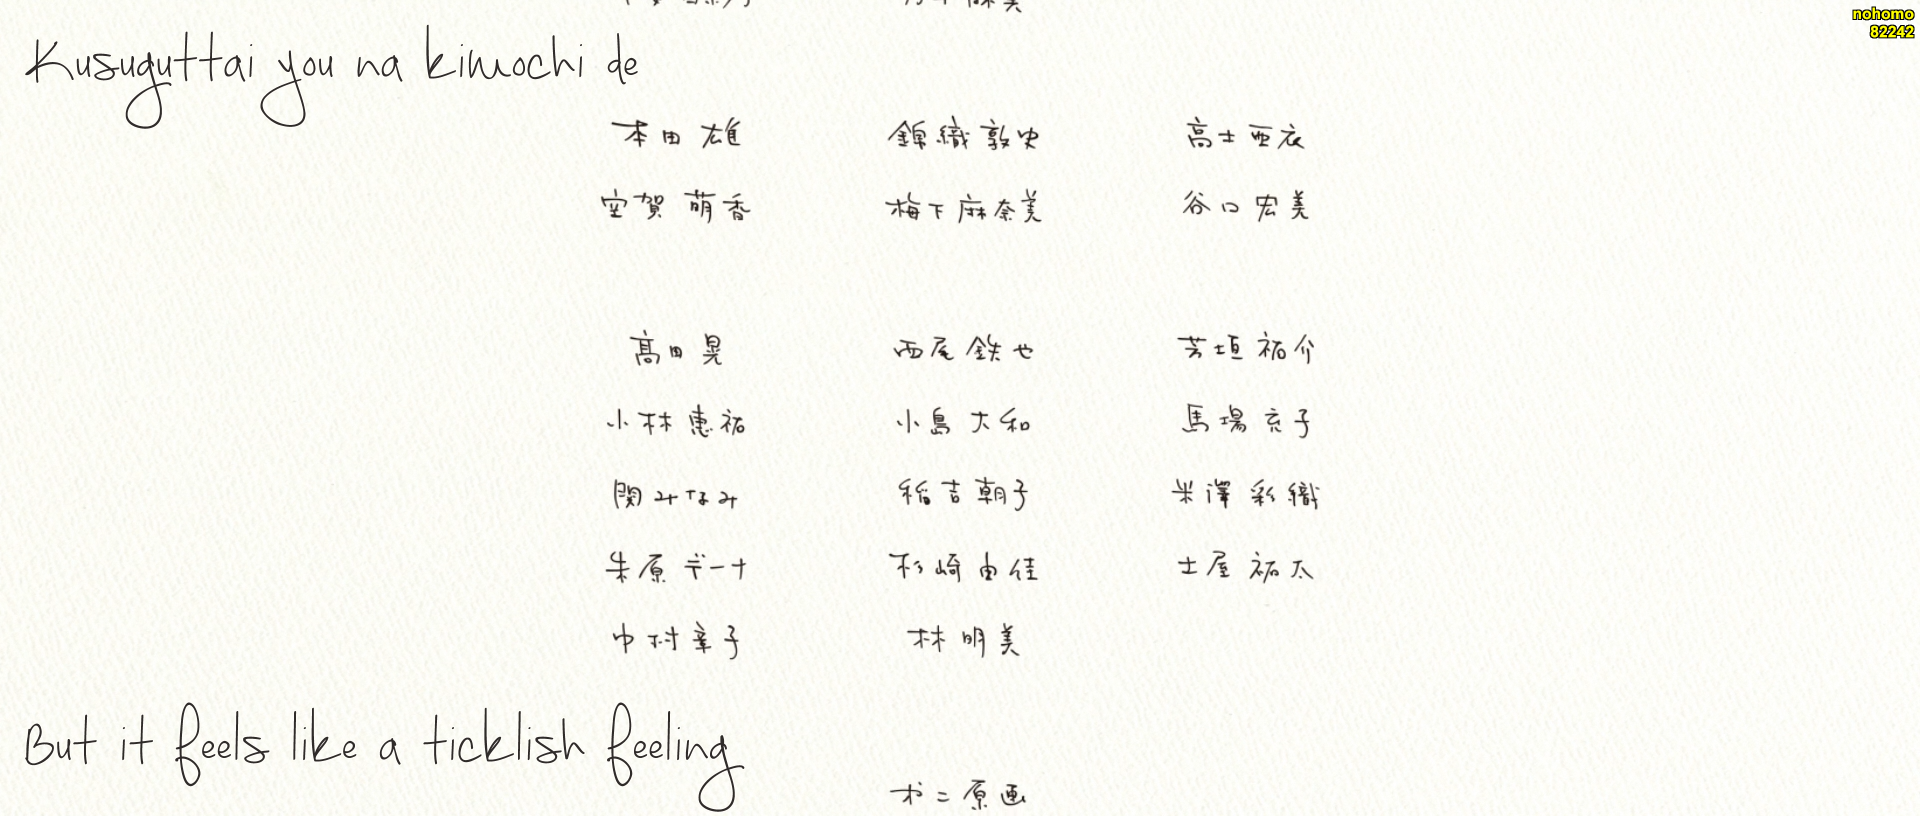 nohomo
82242
Kusuguttai you na kimochi de
本田 雄 錦織敦史 高士亜衣
空賀 萌香 梅下麻奈美 谷口 宏美
髙田 晃 西尾 鉄也 芳垣 祐介
小林 恵祐 小島 大和 馬場 充子
関 みなみ 稲吉朝子 米澤 彩織
朱原 デーナ 杉崎由佳 土屋 祐太
中村 章子 林 明美
But it feels like a ticklish feeling
才二原画